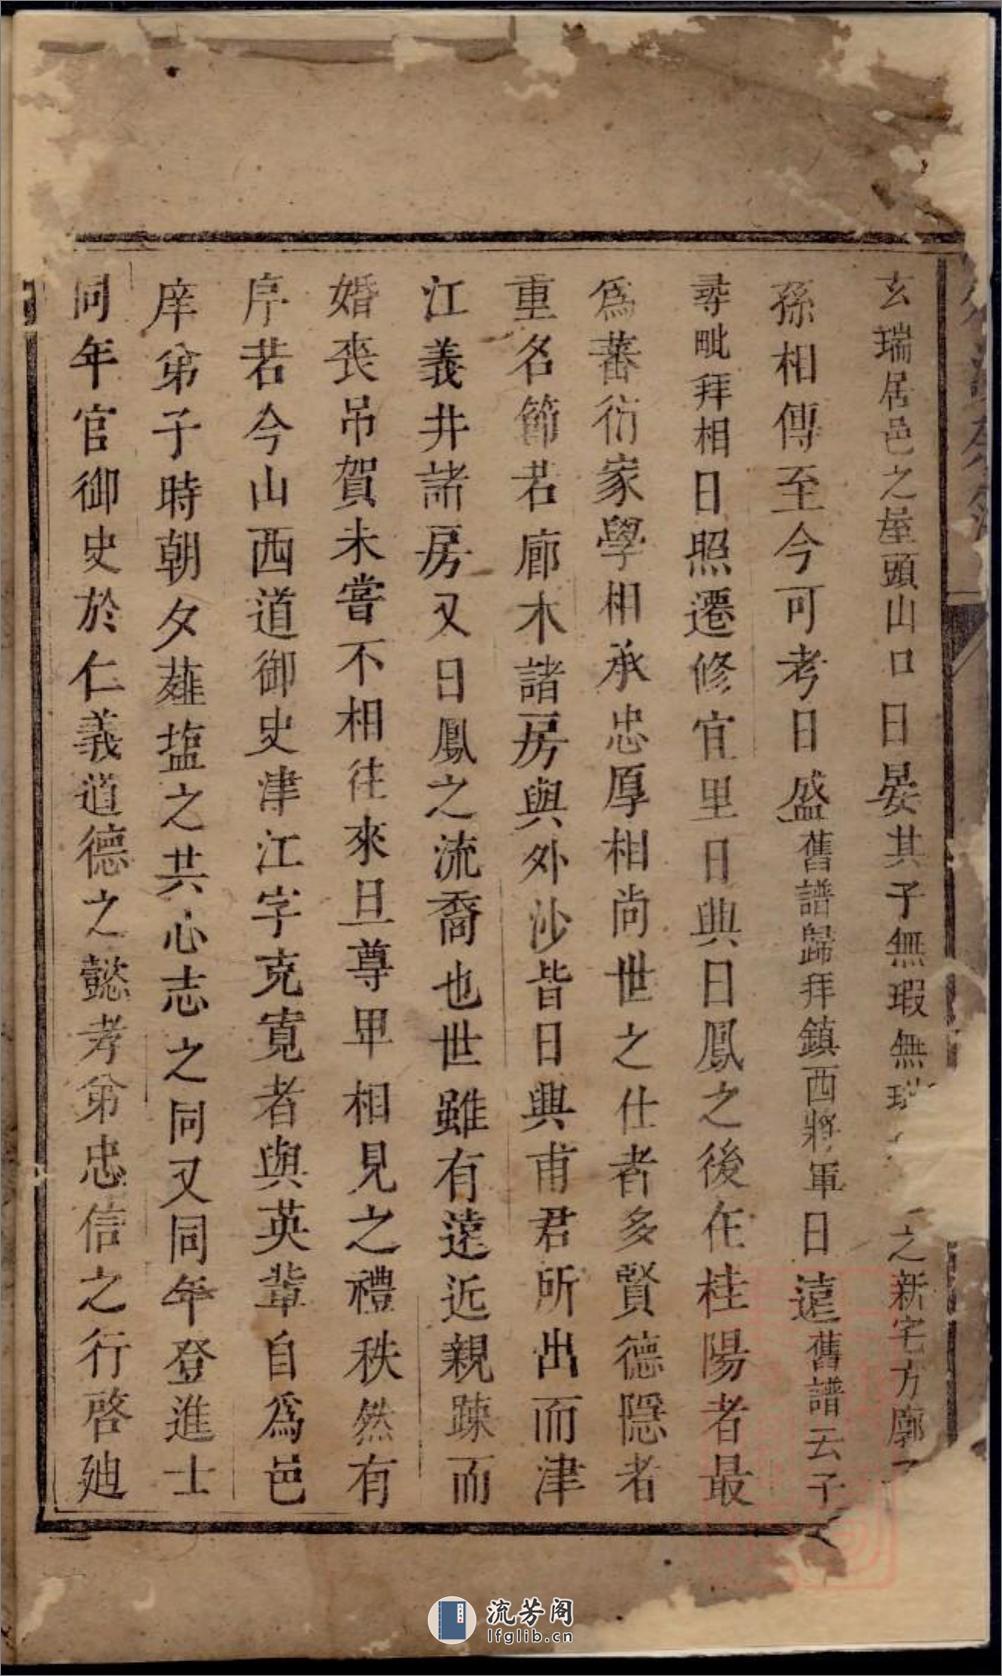 玄瑞居邑之屋頭山口曰晏其子無瑕無瑞之新宅方廓
孫相傳至今可考曰盛舊譜歸拜鎮西將軍曰遠舊譜云子
尋毗拜相曰照遷修宜里曰興曰鳳之後在桂陽者最
爲蕃衍家學相承忠厚相尚世之仕者多賢德隱者
重名節若廊木諸房與外沙皆曰興甫君所出而津
江義井諸房又曰鳳之流裔也世雖有遠近親踈而
婚喪吊賀未嘗不相往來且尊卑相見之禮秩然有
序若今山西道御史津江字克寬者與英輩自爲邑
庠弟子時朝夕薤塩之共心志之同又同年登進士
同年官御史於仁義道德之懿孝弟忠信之行啓廸
流芳阁
lfglib.cn